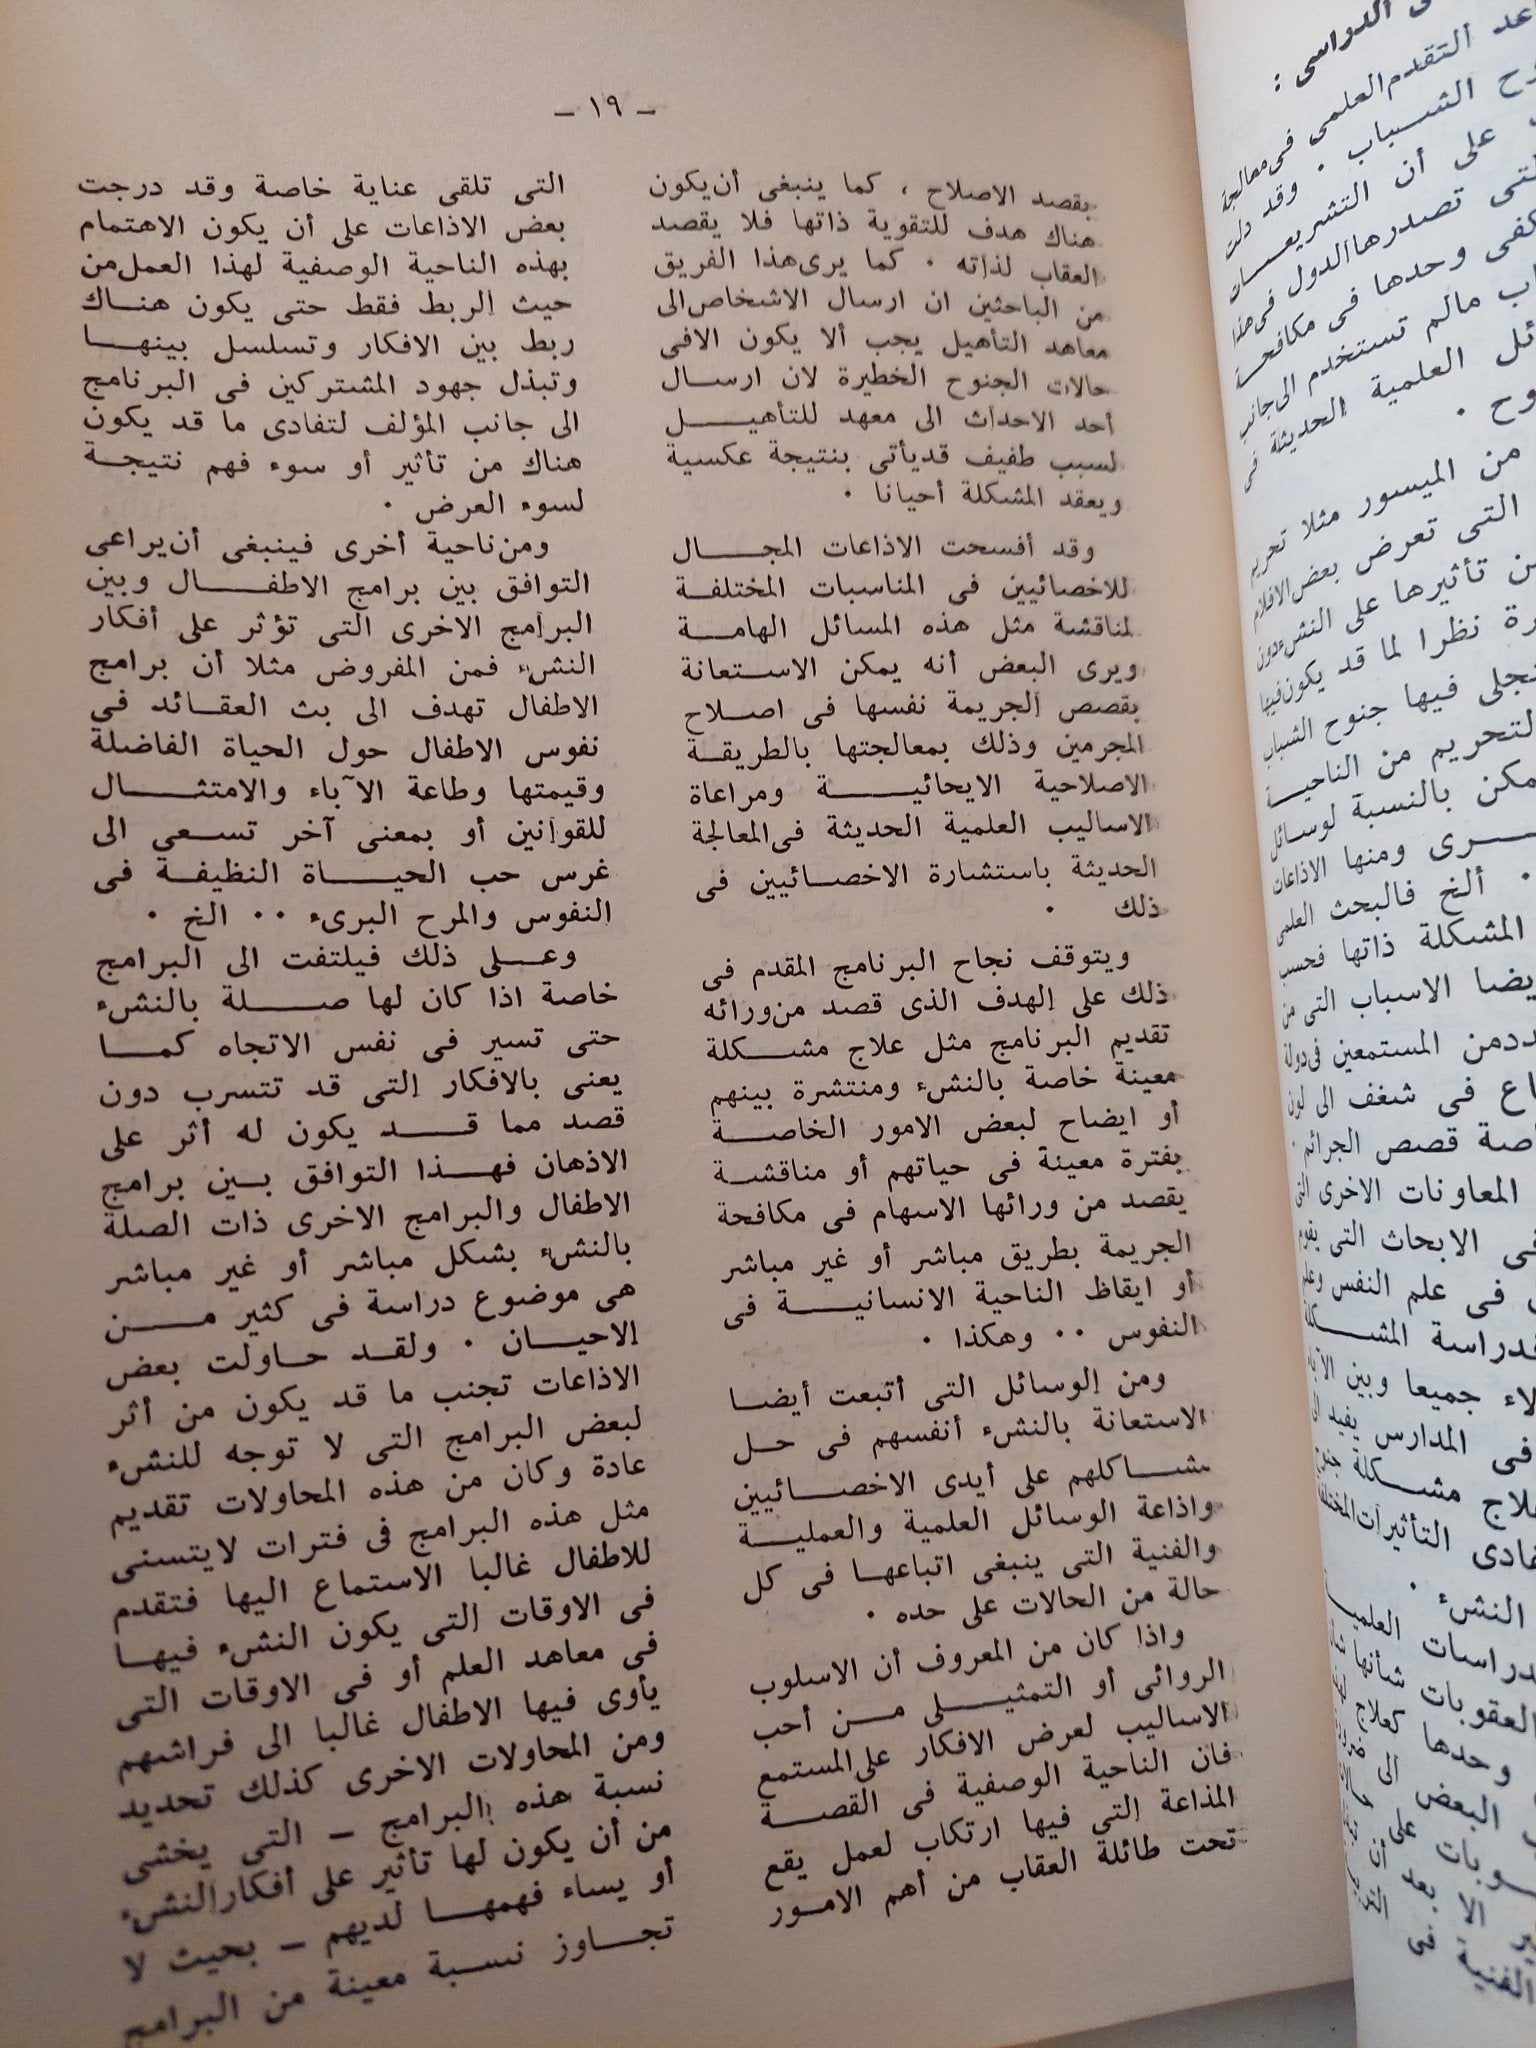 - ١٩ -
بقصد الاصلاح ، كما ينبغى أن يكون
هناك هدف للتقوية ذاتها فلا يقصد
العقاب لذاته . كما يرى هذا الفريق
من الباحثين ان ارسال الاشخاص الى
معاهد التأهيل يجب ألا يكون الا فى
حالات الجنوح الخطيرة لان ارسال
أحد الاحداث الى معهد للتأهيل
لسبب طفيف قد يأتى بنتيجة عكسية
ويعقد المشكلة أحيانا .
وقد أفسحت الاذاعات المجال
للاخصائيين فى المناسبات المختلفة
لمناقشة مثل هذه المسائل الهامة
ويرى البعض أنه يمكن الاستعانة
بقصص الجريمة نفسها فى اصلاح
المجرمين وذلك بمعالجتها بالطريقة
الاصلاحية الايحائية ومراعاة
الاساليب العلمية الحديثة فى المعالجة
الحديثة باستشارة الاخصائيين فى
ذلك .
ويتوقف نجاح البرنامج المقدم فى
ذلك على الهدف الذى قصد من ورائه
تقديم البرنامج مثل علاج مشكلة
معينة خاصة بالنشء ومنتشرة بينهم
أو ايضاح لبعض الامور الخاصة
بفترة معينة فى حياتهم أو مناقشة
يقصد من ورائها الاسهام فى مكافحة
الجريمة بطريق مباشر أو غير مباشر
أو ايقاظ الناحية الانسانية فى
النفوس . . وهكذا .
ومن الوسائل التى أتبعت أيضا
الاستعانة بالنشء أنفسهم فى حل
مشاكلهم على أيدى الاخصائيين
واذاعة الوسائل العلمية والعملية
والفنية التى ينبغى اتباعها فى كل
حالة من الحالات على حده .
واذا كان من المعروف أن الاسلوب
الروائى أو التمثيلى من أحب
الاساليب لعرض الافكار على المستمع
فان الناحية الوصفية فى القصة
المذاعة التى فيها ارتكاب لعمل يقع
تحت طائلة العقاب من أهم الامور
التى تلقى عناية خاصة وقد درجت
بعض الاذاعات على أن يكون الاهتمام
بهذه الناحية الوصفية لهذا العمل من
حيث الربط فقط حتى يكون هناك
ربط بين الافكار وتسلسل بينها
وتبذل جهود المشتركين فى البرنامج
الى جانب المؤلف لتفادى ما قد يكون
هناك من تأثير أو سوء فهم نتيجة
لسوء العرض .
ومن ناحية أخرى فينبغى أن يراعى
التوافق بين برامج الاطفال وبين
البرامج الاخرى التى تؤثر على أفكار
النشء فمن المفروض مثلا أن برامج
الاطفال تهدف الى بث العقائد فى
نفوس الاطفال حول الحياة الفاضلة
وقيمتها وطاعة الآباء والامتثال
للقوانين أو بمعنى آخر تسعى الى
غرس حب الحياة النظيفة فى
النفوس والمرح البرىء . . الخ .
وعلى ذلك فيلتفت الى البرامج
خاصة اذا كان لها صلة بالنشء
حتى تسير فى نفس الاتجاه كما
يعنى بالافكار التى قد تتسرب دون
قصد مما قد يكون له أثر على
الاذهان فهذا التوافق بين برامج
الاطفال والبرامج الاخرى ذات الصلة
بالنشء بشكل مباشر أو غير مباشر
هى موضوع دراسة فى كثير من
الاحيان . ولقد حاولت بعض
الاذاعات تجنب ما قد يكون من أثر
لبعض البرامج التى لا توجه للنشء
عادة وكان من هذه المحاولات تقديم
مثل هذه البرامج فى فترات لا يتسنى
للاطفال غالبا الاستماع اليها فتقدم
فى الاوقات التى يكون النشء فيها
فى معاهد العلم أو فى الاوقات التى
يأوى فيها الاطفال غالبا الى فراشهم
ومن المحاولات الاخرى كذلك تحديد
نسبة هذه البرامج - التى يخشى
من أن يكون لها تأثير على أفكار النشء
أو يساء فهمها لديهم - بحيث لا
تجاوز نسبة معينة من البرامج
الدراسى :
التقدم العلمى فى معالجة
الشباب . وقد دلت
على أن التشريعات
تصدرها الدول فى هذا
وحدها فى مكافحة
مالم تستخدم الى جانب
العلمية الحديثة فى
من الميسور مثلا تحريم
التى تعرض بعض الافلام
تأثيرها على النشء دون
نظرا لما قد يكون فيها
فيها جنوح الشباب
التحريم من الناحية
بالنسبة لوسائل
ومنها الاذاعات
. ألخ فالبحث العلمى
المشكلة ذاتها فحسب
الاسباب التى من
المستمعين فى دولة
فى شغف الى لون
قصص الجرائم .
المعاونات الاخرى التى
الابحاث التى يقوم
فى علم النفس وعلم
المشكلة
جميعا وبين الآباء
فى المدارس يفيد
مشكلة
التأثيرات المختلفة
النشء .
العلمية
العقوبات شأنها
وحدها كعلاج
البعض الى
على
الا بعد أن
الفنية فى